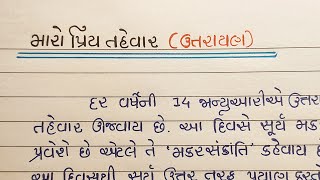 મારો પ્રિય તહેવાર (ઉત્તરાયણ)
દર વર્ષેની 14 જાન્યુઆરીએ ઉત્તરા
તહેવાર ઊજવાય છે. આ દિવસે સૂર્ય મક
પ્રવેશે છે એટલે તે 'મકરસંક્રાંતિ' કહેવાય
આ દિવસથી સૂર્ય ઉત્તર તરફ પ્રયાણ કરતો